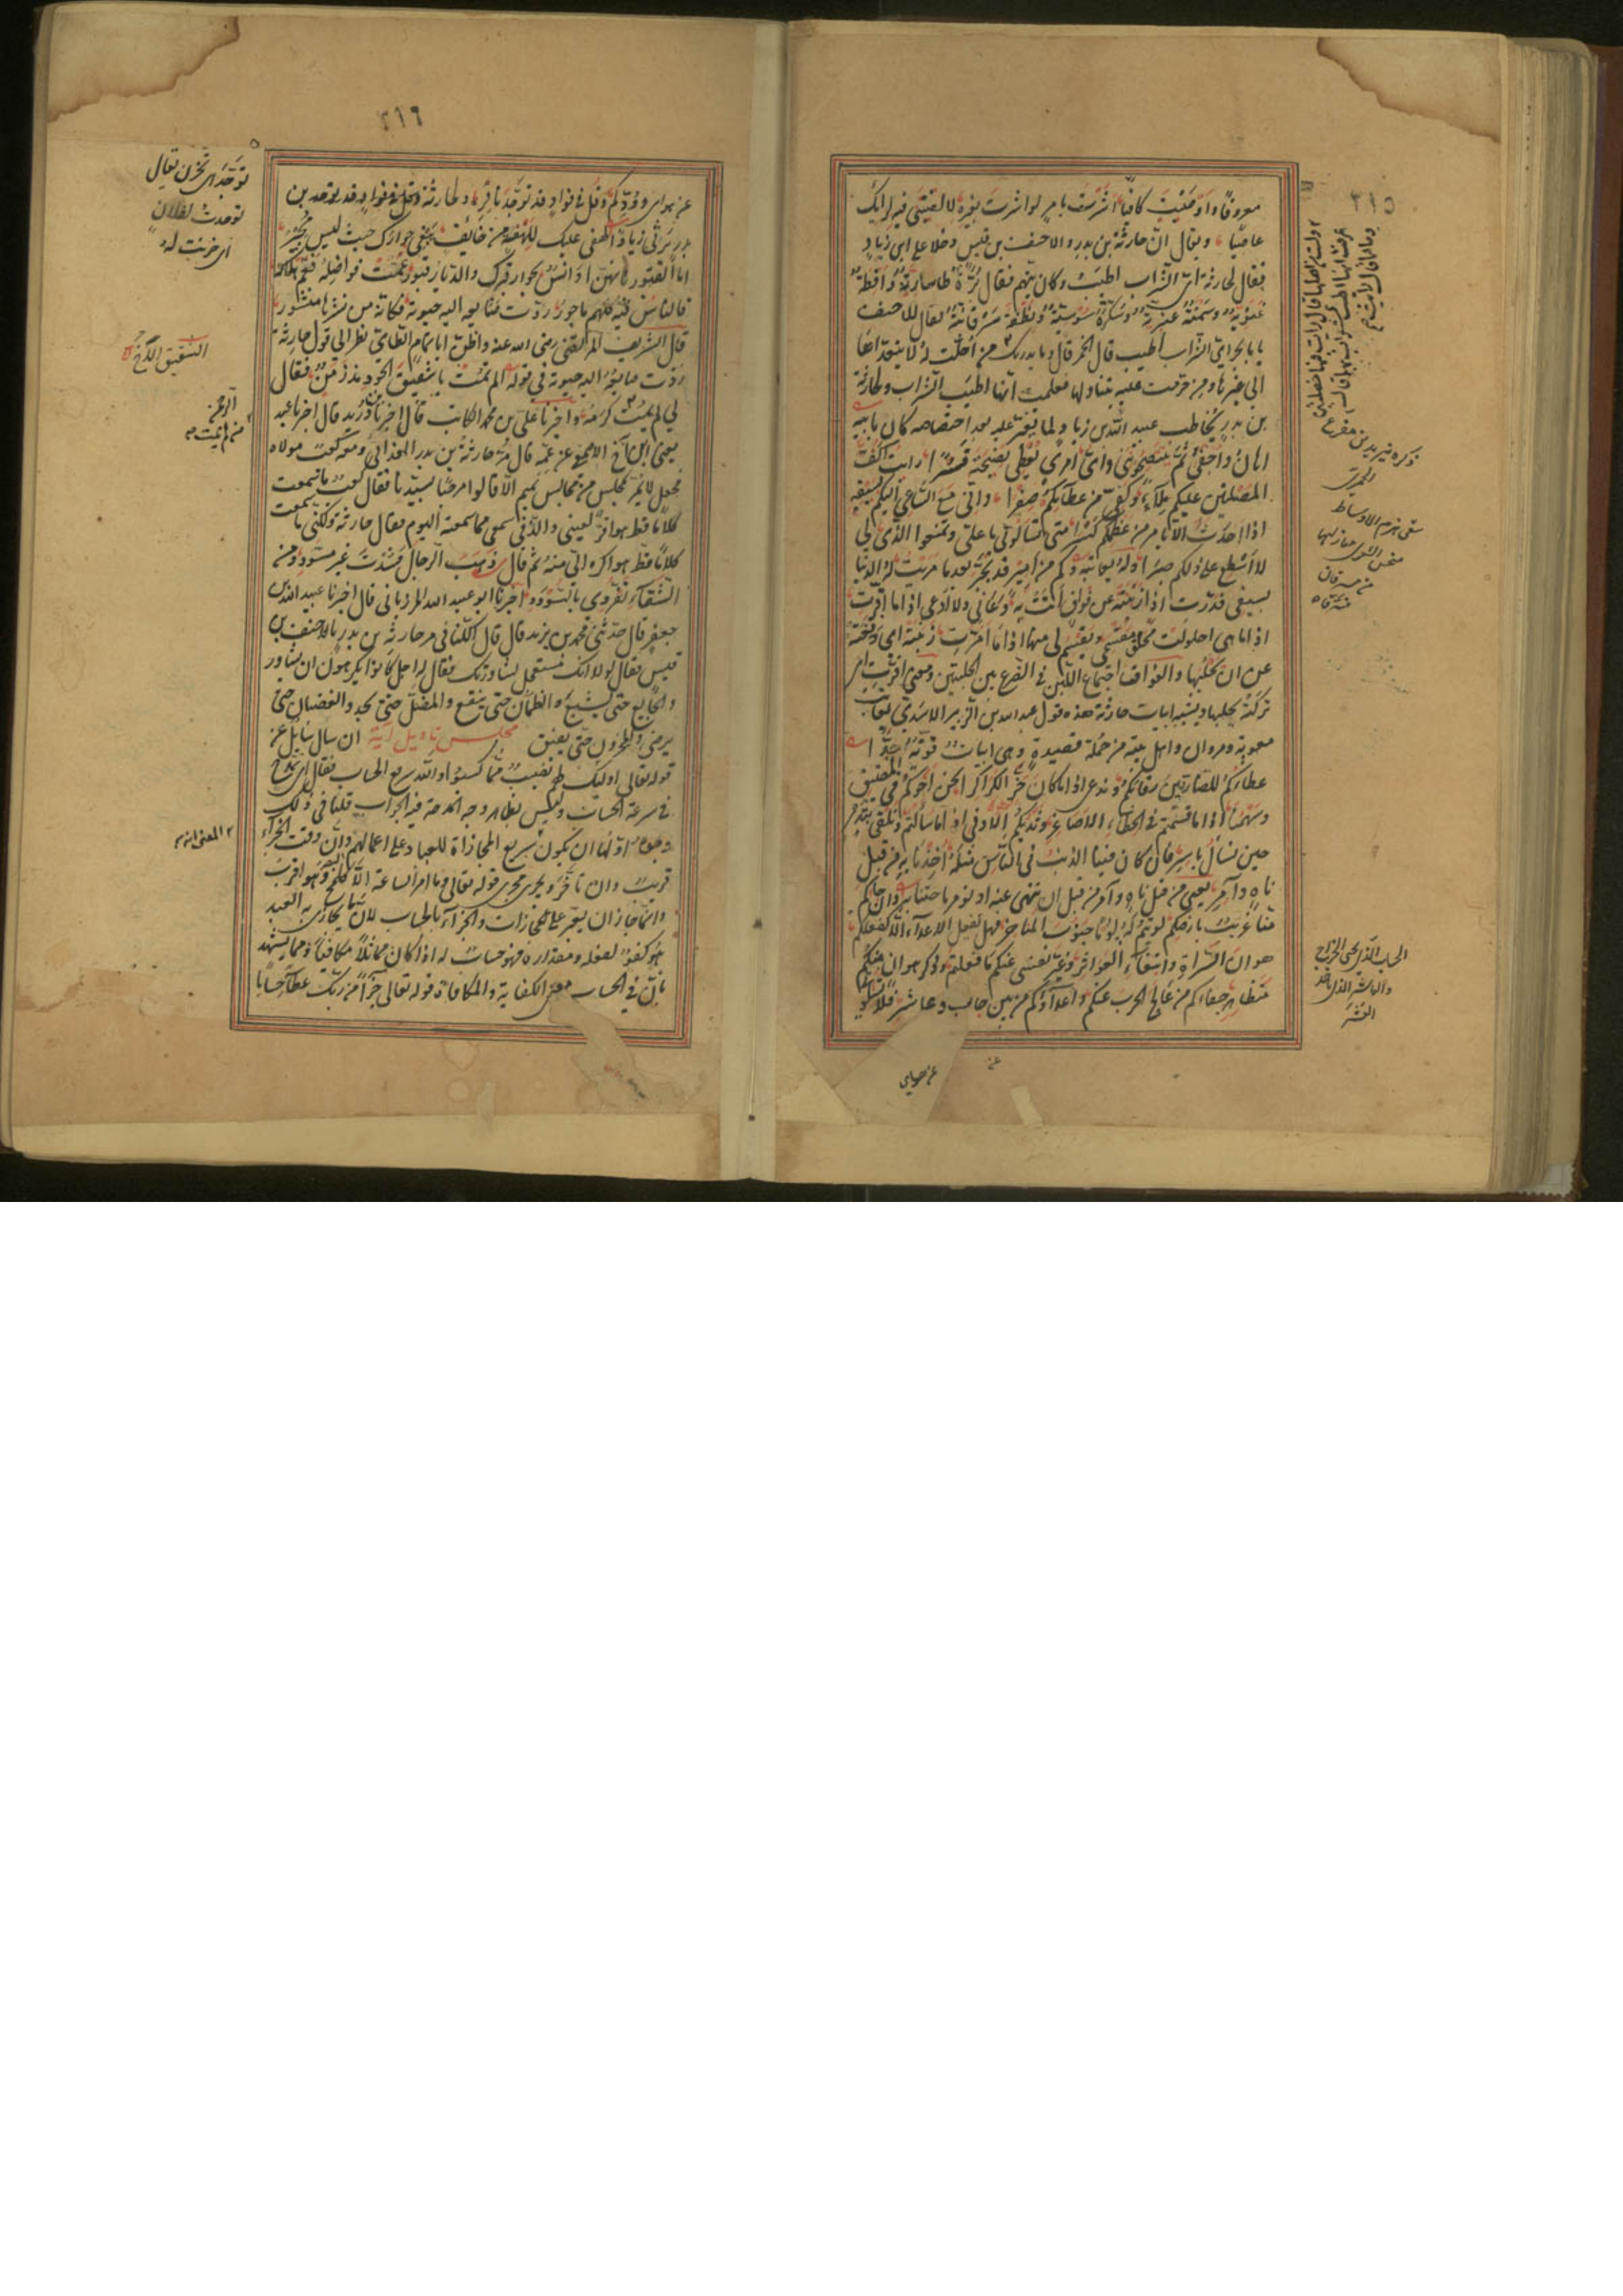 ٢١٥
معروفا واوصيت كافيا اشرت بامر لو اشرت بغيره لالفيتني فيه لرايك
عاصيا ويقال ان حارثة بن بدر والاحنف بن قيس دخلا على ابي زياد
فقال لحارثة اي الشراب اطيب وكان يتهم فقال برة طاسارية واقطة
غنوية وسمنة عنبرية وسكرة سوسية ونطفة مسرقانية فقال للاحنف
يا با بحر اي الشراب اطيب قال الخمر قال وما يدريك قال من احلت له لا يتعداها
الى غيرها ومن حرمت عليه يتناولها فعلمت انها اطيب الشراب ولحارثة
بن بدر يخاطب عبيد الله بن زياد لما تغير عليه بعد اختصاصه كان بابيه
اهان واجفى ثم تنتصحونني واي امرئ يعطي نصيحته قسرا رايت اكف
المصلتين عليكم ملاء وكفي من عطائكم صفرا واني مع الساعي اليكم بسيفه
اذا احدث الايام من عظمكم كسرا متى تسالوني ما علي وتمنعوا الذي لي
لا اسطع على ذلكم صبرا وله يعاتبه وكم من امير قد تجبر بعدما مريت له الدنيا
بسيفي فدرت اذا زبنته عن فواق اتت به دعاني ولا ادعى اذا ما اقرت
اذا ما هي احلولت محا حق مقسمي ويقسم لي منها اذا ما امرت زبنته اي دفعته
عن ان يحلبها والفواق اجتماع اللبن في الضرع بين الحلبتين ومعنى اقرت اي
تركته يحلبها ويشبه ابيات حارثة هذه قول عبد الله بن الزبير الاسدي يعاتب
معوية ومروان واهل بيته من جملة قصيدة وهي ابيات قوية جدا
عطاؤكم للضاربين رقابكم وندعى اذا ما كان حز الكراكر انحن اخوكم في المضيق
وسهمنا اذا ما قسمتم في الخطاء الاصاغر وثديكم الادنى اذا ما سالتم ونلقى بثدي
حين نسال باسر فان كان فينا الذنب في الناس مثله اخذنا به من قبل
ناه وآمر يعني من قبل ناه وآمر من قبل ان ننهى عنه او نومر باجتنابه وان جاءكم
منا غريب بارضكم لويتم له يوما جنوب المناخر فهل يفعل الاعداء الا كفعلكم
هوان السراة وابتغاء العواثر وغير نفسي عنكم ما فعلتم وذكر هوان منكم
متظاهر جفاؤكم من عالج الحرب عنكم واعداؤكم من بين جاب وعاشر فلا تسالوني
عن هواي
ذكره يزيد بن مفرغ
الحميري
سقى هزم الاوساط
منازلها
من مسرقان
٢١٦
عن هواي وودكم وقل في فواد قد توجد نافر ولحارثة
بدر يرثي زيادا لهفي عليك للهفة من خائف يبغي جوارك حيث ليس مجير
اما القبور فانهن اوانس بجوار قبرك والديار قبور عمت فواضله فعم هلاكه
فالناس فيه كلهم ماجور ردت صنائعه اليه حيوته فكانه من نشرها منشور
قال الشريف المرتضى رضي الله عنه واظن ابا تمام الطائي نظر الى قول حارثة
ردت صنايعه اليه حيوته في قوله الم تمت يا شقيق الجود مذ زمن فقال
لي لم يمت كرمه واخبرنا علي بن محمد الكاتب قال اخبرنا بن دريد قال اخبرنا عبد
يعني ابن اخ الاصمعي عن عمه قال مر حارثة بن بدر الغداني ومعه كعب مولاه
فجعل لا يمر بمجلس من مجالس تميم الا قالوا مرحبا بسيدنا فقال كعب ما سمعت
كلاما قط هو اقر لعيني والذ في سمعي مما سمعته اليوم فقال حارثة ولكني ما سمعت
كلاما قط هو اكره الي منه ثم قال ذهب الرجال فسدت غير مسود ومن
الشقاء تفردي بالسؤدد اخبرنا ابو عبيد الله المرزباني قال اخبرنا عبيد الله بن
جعفر قال حدثني محمد بن يزيد قال قال الكناني مر حارثة بن بدر بالاحنف بن
قيس فقال لولا انك مستعجل لشاورتك فقال له اجل كانوا يكرهون ان يشاور
الجايع حتى يشبع والظمان حتى ينقع والمضل حتى يجد والغضبان حتى
يرضى والمحزون حتى يفيق مجلس تاويل آية ان سال سايل عن
قوله تعالى اوليك لهم نصيب مما كسبوا والله سريع الحساب فقال اي تمدح
في سرعة الحساب وليس بظاهر وجه المدحة فيه الجواب قلنا في ذلك
وجوه اولها ان يكون سريع المجازاة للعباد على اعمالهم وان وقت الجزاء
قريب وان تاخر ويجري مجرى قوله تعالى وما امر الساعة الا كلمح البصر او هو اقرب
وانما جاز ان يعبر عن المجازات والجزاء بالحساب لان ما يجازى به العبد
هو كفؤ لفعله ومقداره فهو حساب له اذا كان مماثلا مكافيا ومما يشهد
بان في الحساب معنى الكفاية والمكافاة قوله تعالى جزآء من ربك عطاء حسابا
توجد اي تحزن يقال
توجدت لفلان
اي حزنت له
الشقيق الاخ
المعنى انه